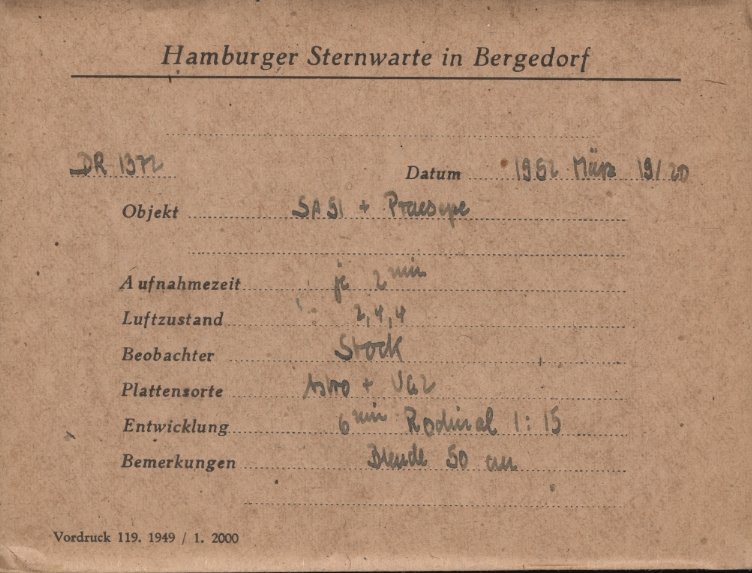 Hamburger Sternwarte in Bergedorf
DR 1372 Datum 1962 März 19/20
Objekt SA 51 + Praesepe
Aufnahmezeit je 2 min
Luftzustand 2,4,4
Beobachter Stock
Plattensorte Astro + UG2
Entwicklung 6 min Rodinal 1:15
Bemerkungen Blende 50 cm
Vordruck 119. 1949 / 1. 2000